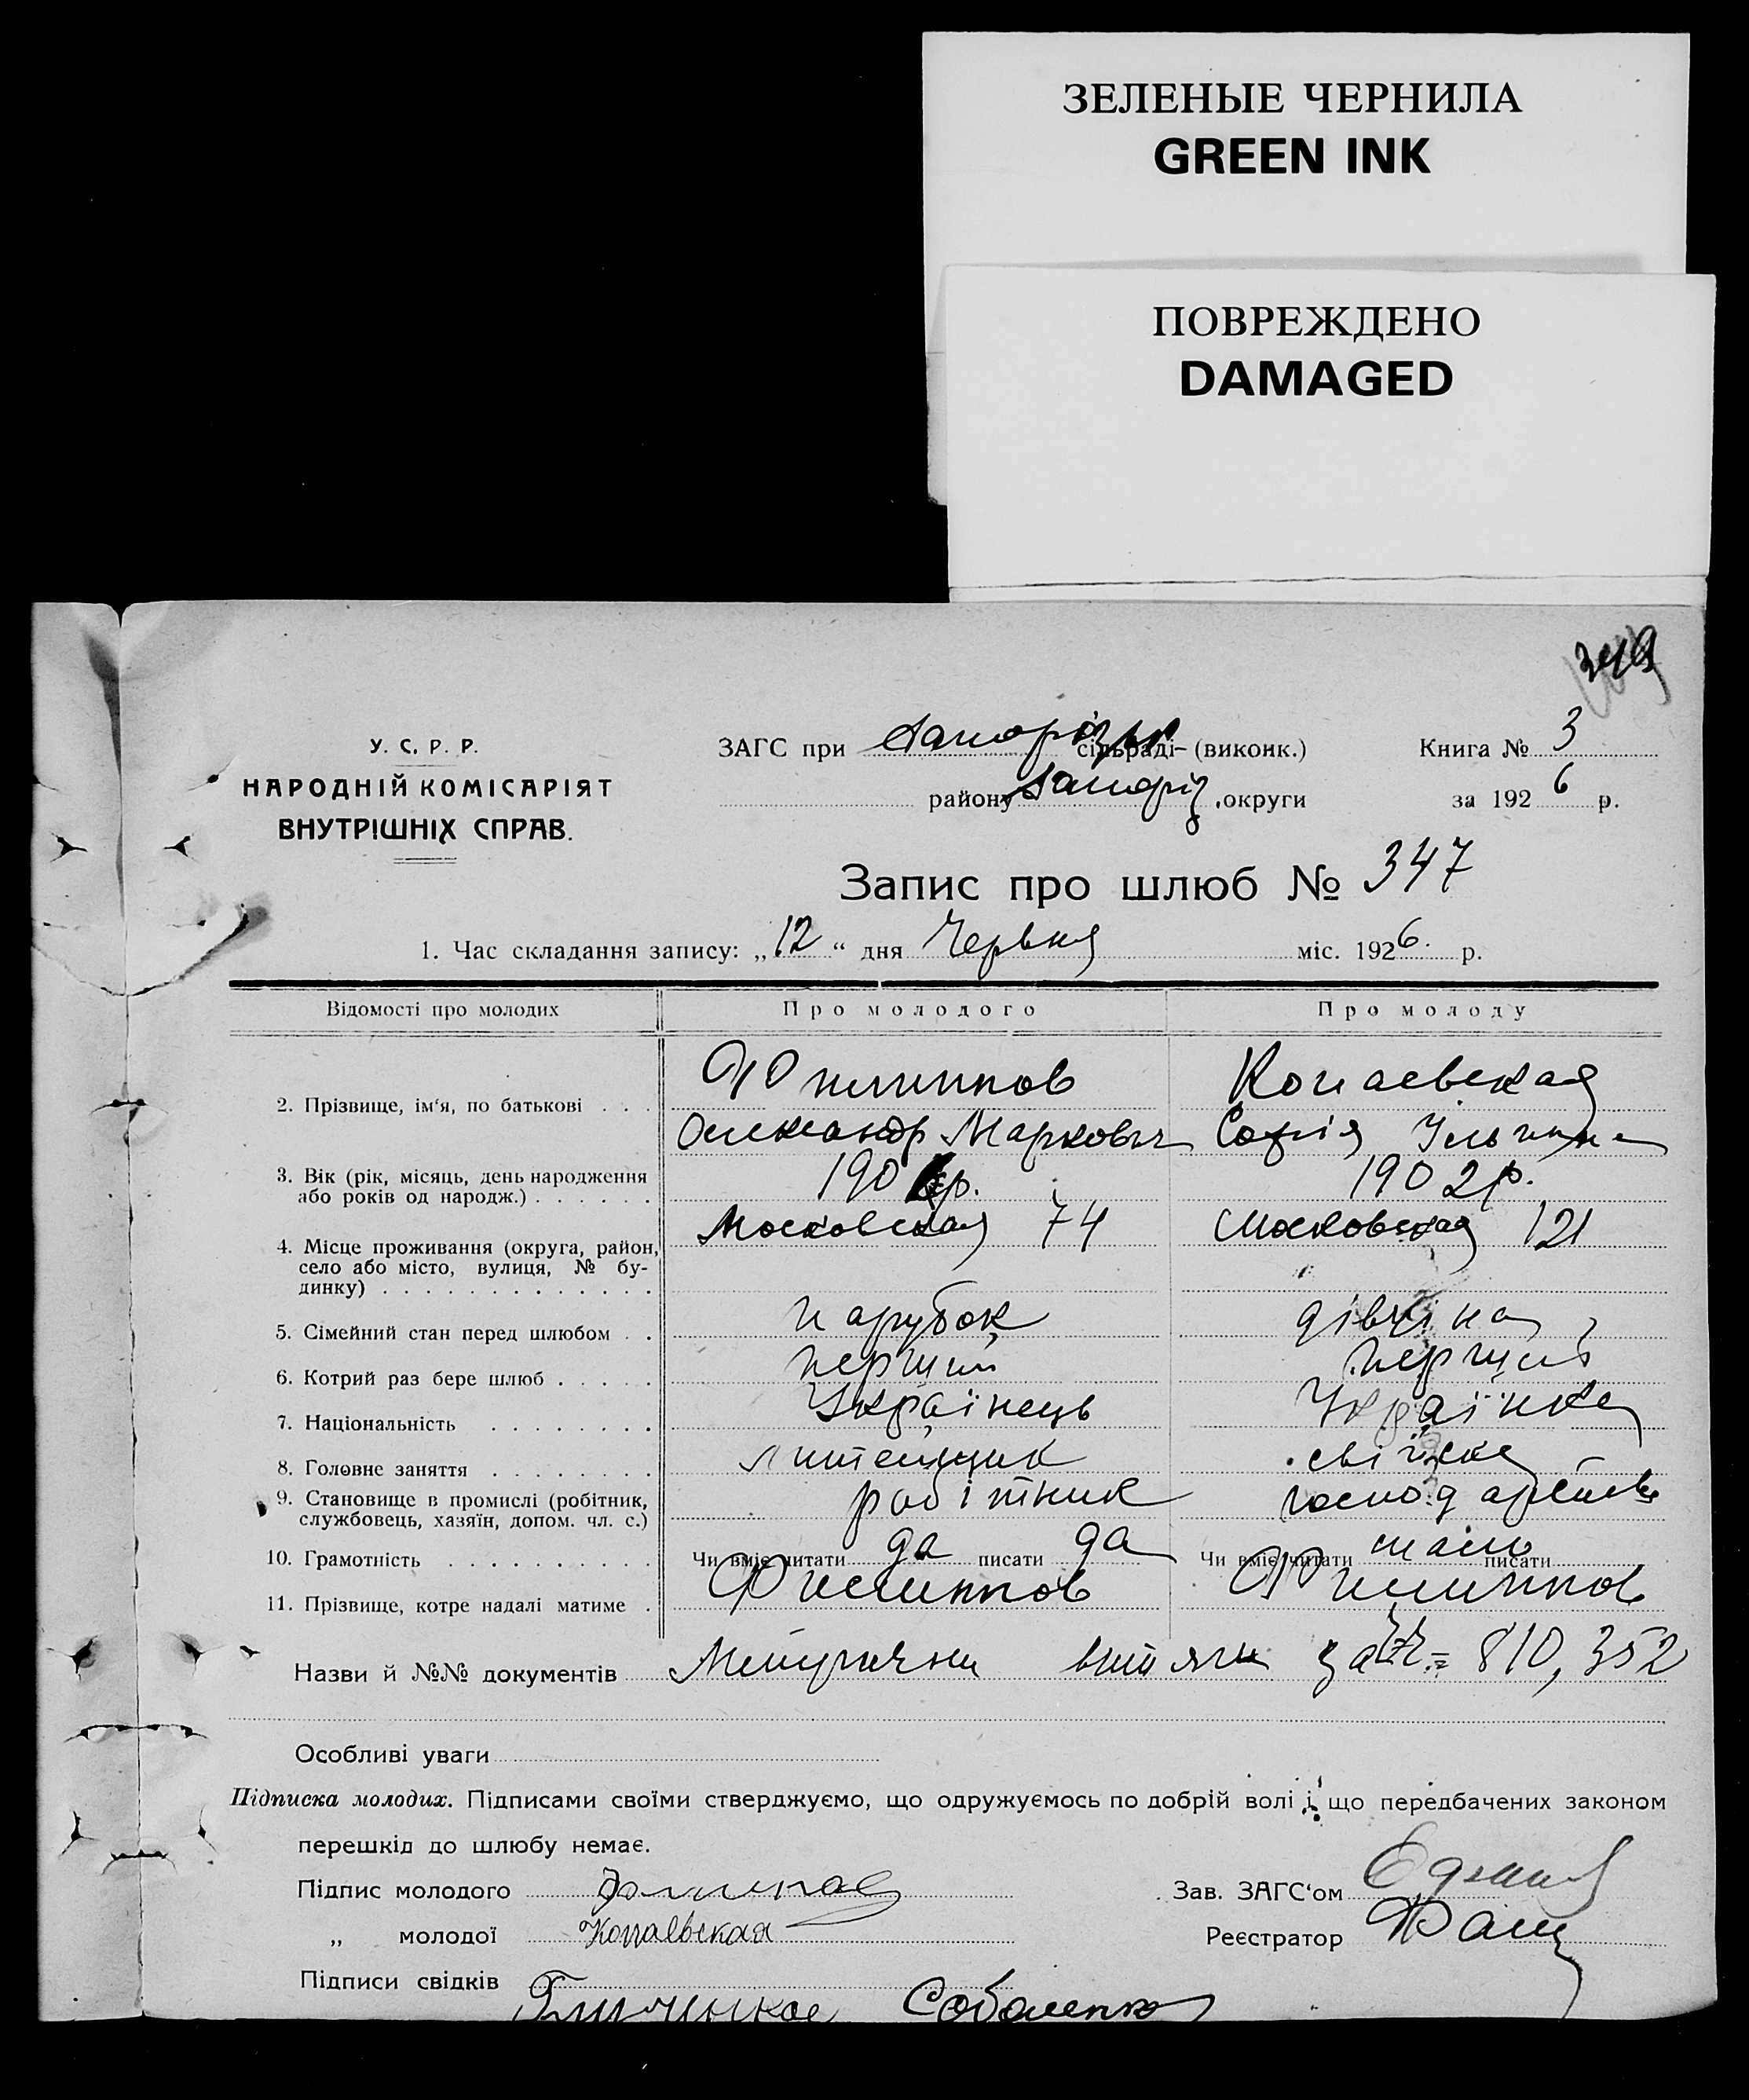 ЗЕЛЕНЫЕ ЧЕРНИЛА
GREEN INK
ПОВРЕЖДЕНО
DAMAGED
349
У. С. Р. Р.
НАРОДНІЙ КОМІСАРІЯТ
ВНУТРІШНІХ СПРАВ.
ЗАГС при Запорізьк сільраді (виконк.)
Книга № 3
району Запоріз. округи
за 1926 р.
Запис про шлюб № 347
1. Час складання запису: „12“ дня Червня міс. 1926. р.
Відомості про молодих
Про молодого
Про молоду
2. Прізвище, ім'я, по батькові . . .
Филиппов
Олександр Маркович
Копаевская
Софія Ильин
3. Вік (рік, місяць, день народження
або років од народж.) . . . . . .
190 р.
1902 р.
4. Місце проживання (округа, район,
село або місто, вулиця, № бу-
динку) . . . . . . . . . . . . .
Московская 74
Московская 121
5. Сімейний стан перед шлюбом . .
парубок
дівчина
6. Котрий раз бере шлюб . . . . .
перший
перший
7. Національність . . . . . . . .
Українець
Українка
8. Головне заняття . . . . . . . .
литейщик
свійске
9. Становище в промислі (робітник,
службовець, хазяїн, допом. чл. с.)
робітник
господарство
10. Грамотність . . . . . . . . . .
Чи вміє читати да писати да
Чи вміє читати мало писати
11. Прізвище, котре надалі матиме .
Филиппов
Филиппов
Назви й №№ документів Метричні витяги за №№ = 810, 352
Особливі уваги
Підписка молодих. Підписами своїми стверджуємо, що одружуємось по добрій волі і що передбачених законом
перешкід до шлюбу немає.
Підпис молодого
Зав. ЗАГС'ом
„ молодої Копаевская
Реєстратор
Підписи свідків
Соболенко